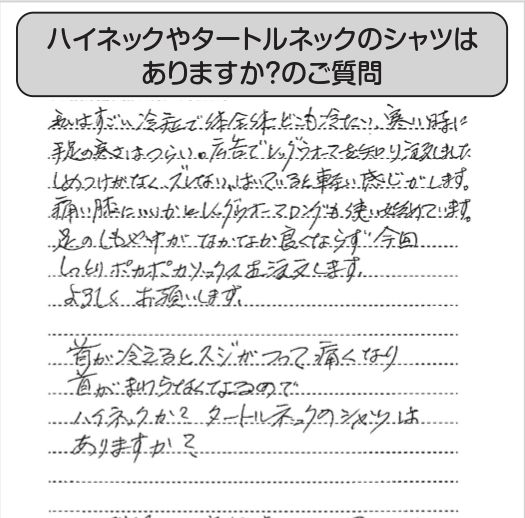 ハイネックやタートルネックのシャツは
ありますか?のご質問
私はすごい冷症で体全体どこも冷たい、寒い時に
手足の寒さはつらい。広告でレッグウォーマーを知り注文しました
しめつけがなく、ズレない、はいていると軽い感じがします。
痛い膝にいいかとレッグウォーマーロングも使い始めています。
足のしもやけがなかなか良くならず今回
しっとりポカポカソックスを注文します。
よろしくお願いします。
首が冷えるとスジがつって痛くなり
首がまわらなくなるので
ハイネックか？タートルネックのシャツは
ありますか？